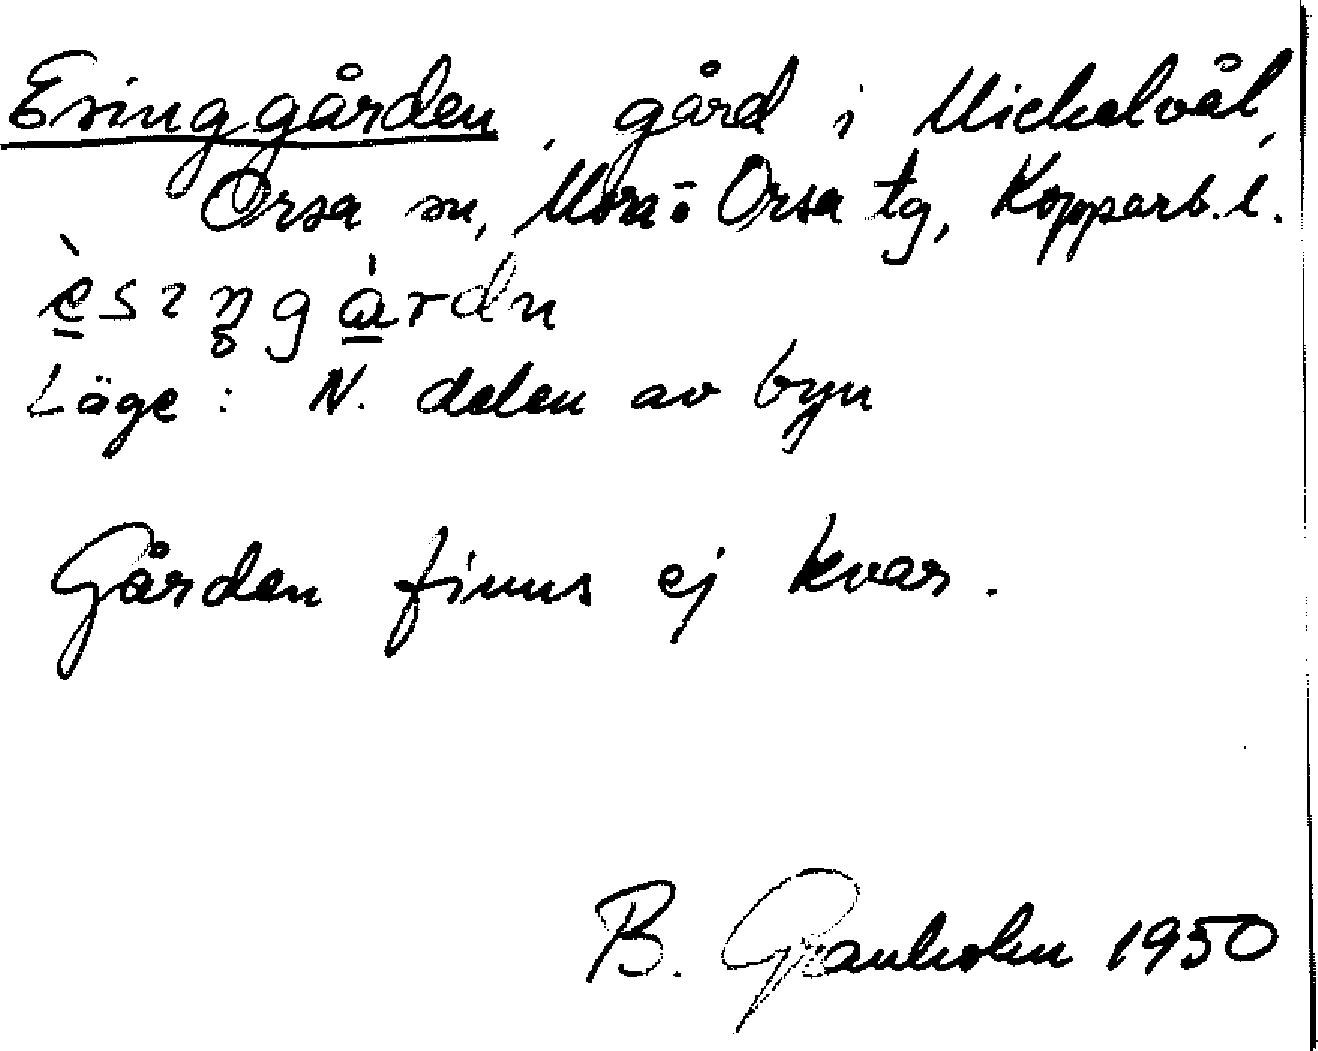 Esinggården, gård i Mickelvål,
Orsa sn, Mora o Orsa tg, Kopparb. l.
èsıŋgàrdn
Läge: N. delen av byn
Gården finns ej kvar.
B. Granholm 1950